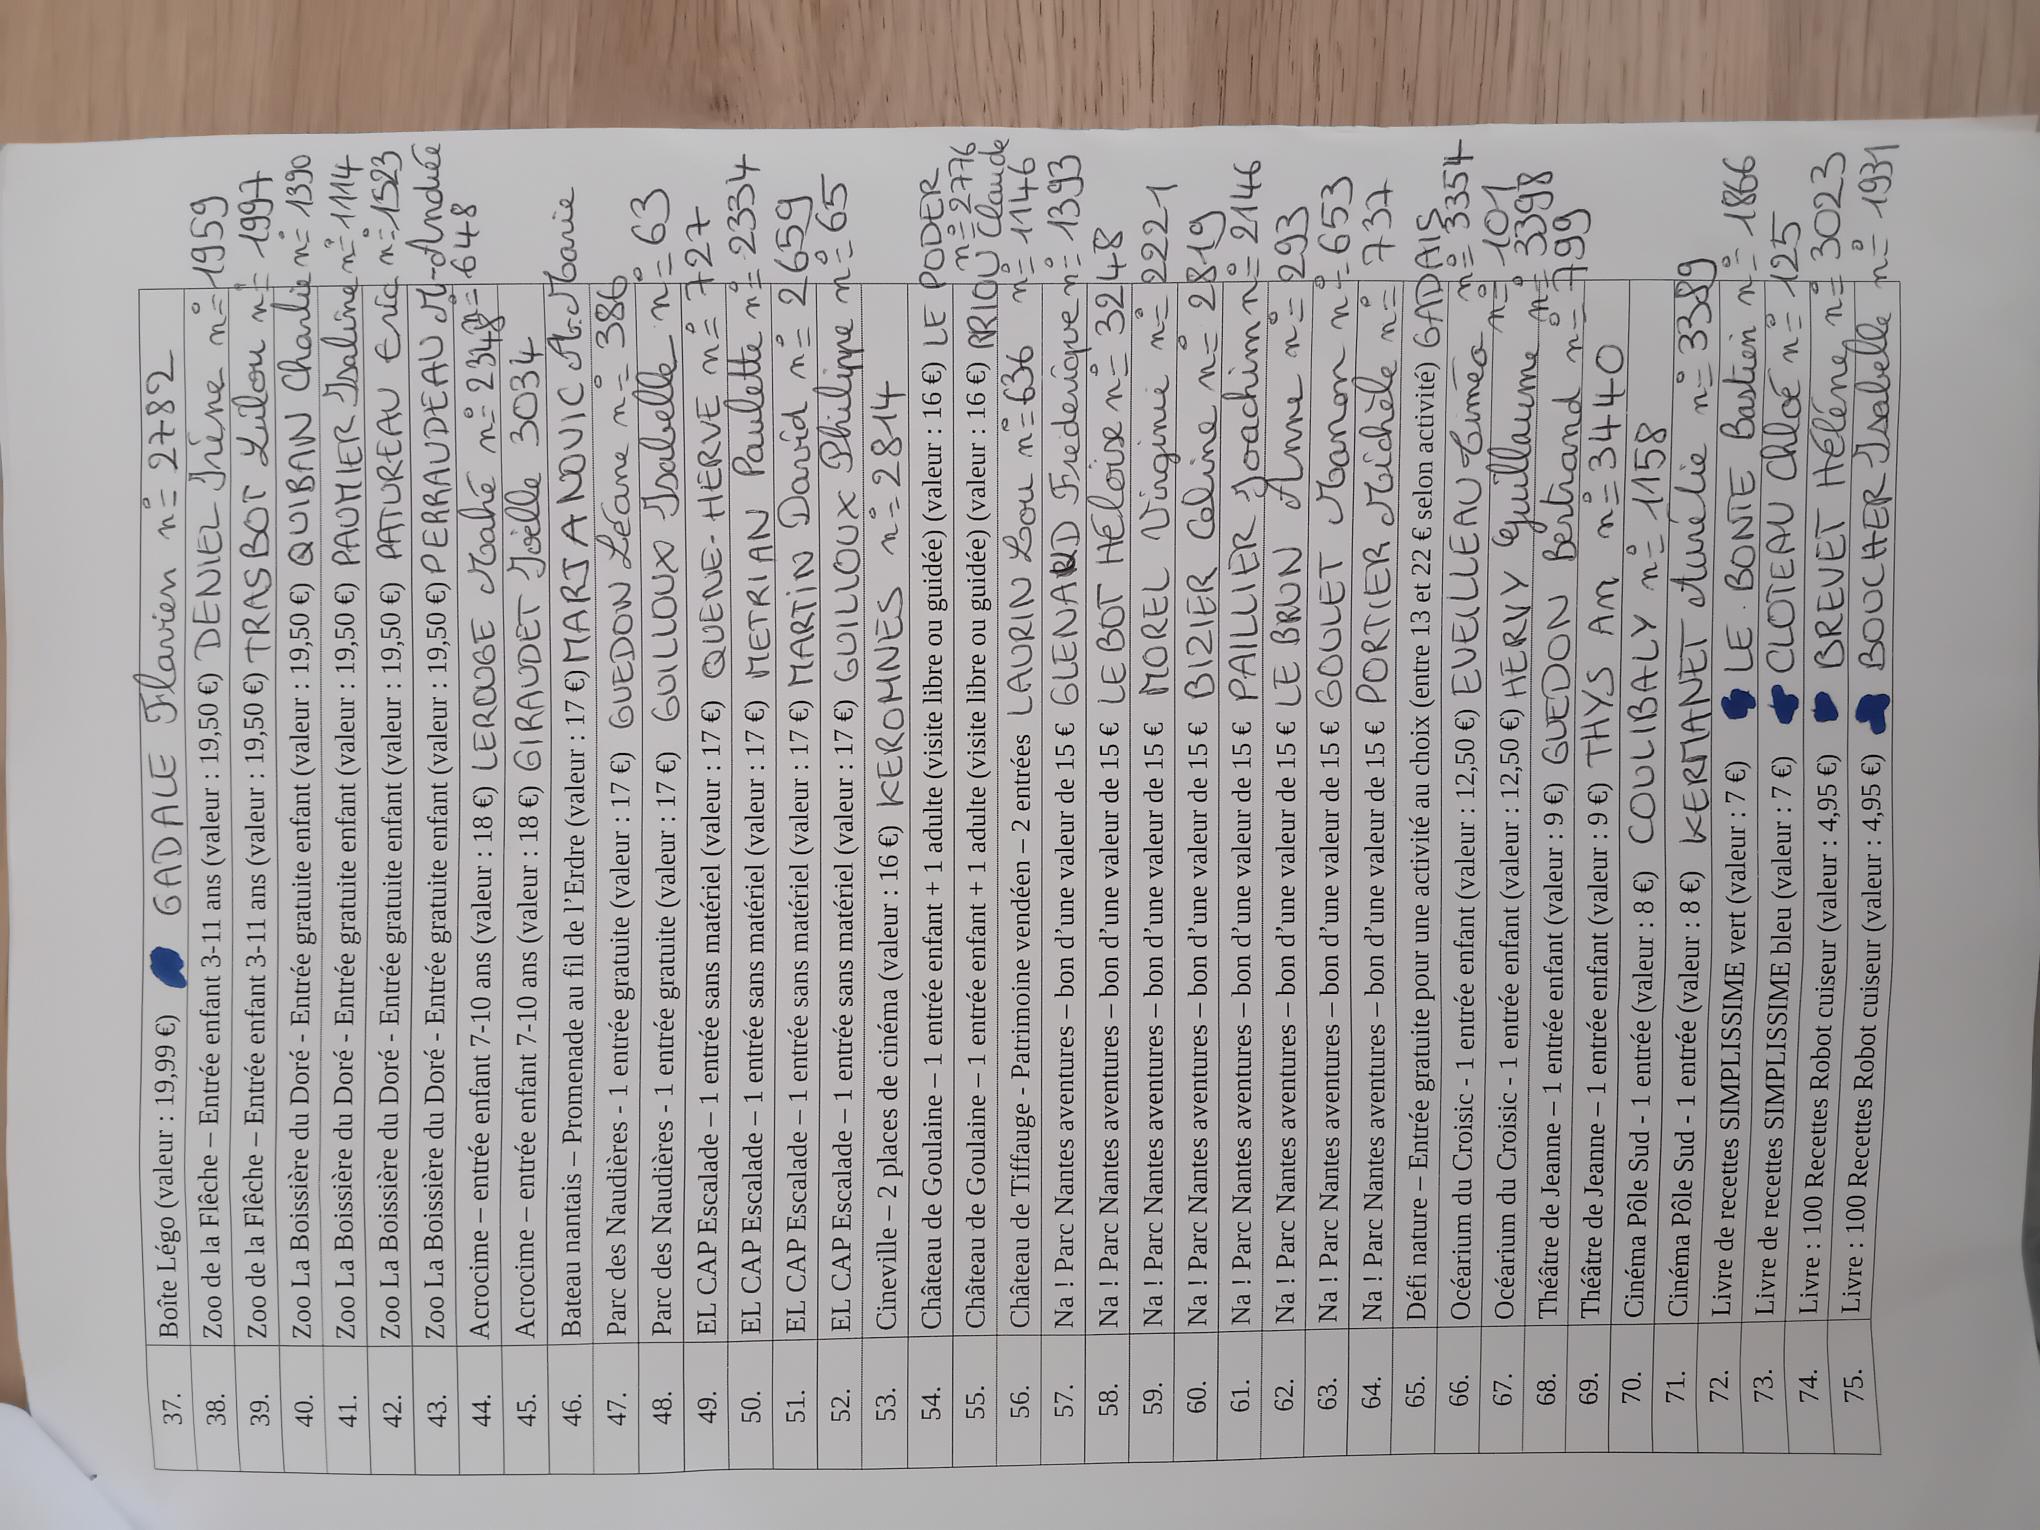 37. Boîte Légo (valeur : 19,99 €) GADALE Flavien n°= 2782
38. Zoo de la Flêche – Entrée enfant 3-11 ans (valeur : 19,50 €) DENIEL Irène n°= 1959
39. Zoo de la Flêche – Entrée enfant 3-11 ans (valeur : 19,50 €) TRASBOT Lilou n°= 1997
40. Zoo La Boissière du Doré - Entrée gratuite enfant (valeur : 19,50 €) QUIBAN Charlie n°= 1390
41. Zoo La Boissière du Doré - Entrée gratuite enfant (valeur : 19,50 €) PAUMIER Isaline n°= 1114
42. Zoo La Boissière du Doré - Entrée gratuite enfant (valeur : 19,50 €) PATUREAU Eric n°= 1523
43. Zoo La Boissière du Doré - Entrée gratuite enfant (valeur : 19,50 €) PERRAUDEAU M-Andrée n°= 648
44. Acrocime – entrée enfant 7-10 ans (valeur : 18 €) LEROUGE Mahé n°= 2348
45. Acrocime – entrée enfant 7-10 ans (valeur : 18 €) GIRAUDET Joëlle 3034
46. Bateau nantais – Promenade au fil de l'Erdre (valeur : 17 €) MARJANOVIC A.Marie
47. Parc des Naudières - 1 entrée gratuite (valeur : 17 €) GUEDON Léane n°= 386
48. Parc des Naudières - 1 entrée gratuite (valeur : 17 €) GUILLOUX Isabelle n°= 63
49. EL CAP Escalade – 1 entrée sans matériel (valeur : 17 €) QUENE-HERVE n°= 727
50. EL CAP Escalade – 1 entrée sans matériel (valeur : 17 €) METRIAN Paulette n°= 2334
51. EL CAP Escalade – 1 entrée sans matériel (valeur : 17 €) MARTIN David n°= 2659
52. EL CAP Escalade – 1 entrée sans matériel (valeur : 17 €) GUILLOUX Philippe n°= 65
53. Cineville – 2 places de cinéma (valeur : 16 €) KEROMNES n°= 2814
54. Château de Goulaine – 1 entrée enfant + 1 adulte (visite libre ou guidée) (valeur : 16 €) LE PODER n°= 2776
55. Château de Goulaine – 1 entrée enfant + 1 adulte (visite libre ou guidée) (valeur : 16 €) BRIOU Claude n°= 1146
56. Château de Tiffauge - Patrimoine vendéen – 2 entrées LAURIN Lou n°= 636
57. Na ! Parc Nantes aventures – bon d'une valeur de 15 € GLENARD Frédérique n°= 1393
58. Na ! Parc Nantes aventures – bon d'une valeur de 15 € LEBOT HEloïse n°= 3248
59. Na ! Parc Nantes aventures – bon d'une valeur de 15 € MOREL Virginie n°= 2221
60. Na ! Parc Nantes aventures – bon d'une valeur de 15 € BIZIER Celine n°= 2819
61. Na ! Parc Nantes aventures – bon d'une valeur de 15 € PAILLIER Joachim n°= 2146
62. Na ! Parc Nantes aventures – bon d'une valeur de 15 € LE BRUN Anne n°= 293
63. Na ! Parc Nantes aventures – bon d'une valeur de 15 € GOULET Manon n°= 653
64. Na ! Parc Nantes aventures – bon d'une valeur de 15 € PORTIER Michèle n°= 737
65. Défi nature – Entrée gratuite pour une activité au choix (entre 13 et 22 € selon activité) GADAIS n°= 3354
66. Océarium du Croisic - 1 entrée enfant (valeur : 12,50 €) EVEILLEAU Timéo n°= 101
67. Océarium du Croisic - 1 entrée enfant (valeur : 12,50 €) HERVY Guillaume n°= 3398
68. Théâtre de Jeanne – 1 entrée enfant (valeur : 9 €) GUEDON Bertrand n°= 799
69. Théâtre de Jeanne – 1 entrée enfant (valeur : 9 €) THYS Am n°= 3440
70. Cinéma Pôle Sud - 1 entrée (valeur : 8 €) COULIBALY n°= 1158
71. Cinéma Pôle Sud - 1 entrée (valeur : 8 €) KERMANET Aurélie n°= 3389
72. Livre de recettes SIMPLISSIME vert (valeur : 7 €) LE BONTE Bastien n°= 1866
73. Livre de recettes SIMPLISSIME bleu (valeur : 7 €) CLOTEAU Chloé n°= 125
74. Livre : 100 Recettes Robot cuiseur (valeur : 4,95 €) BREVET Hélène n°= 3023
75. Livre : 100 Recettes Robot cuiseur (valeur : 4,95 €) BOUCHER Isabelle n°= 1931